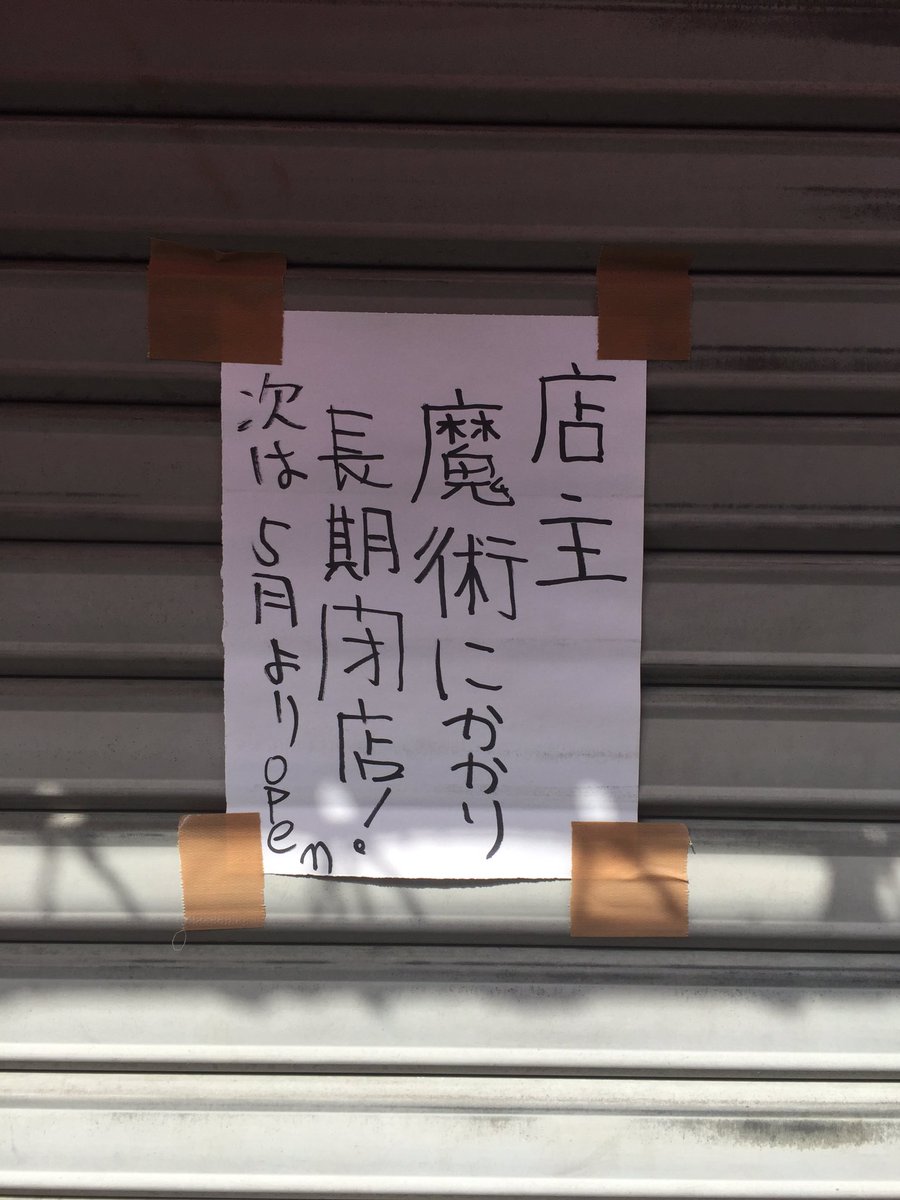 店主
魔術にかかり
長期閉店!
次は5月よりopen